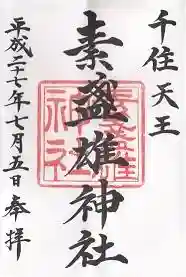 千住天王
素盞雄神社
平成二十七年七月五日奉拝
素盞雄神社